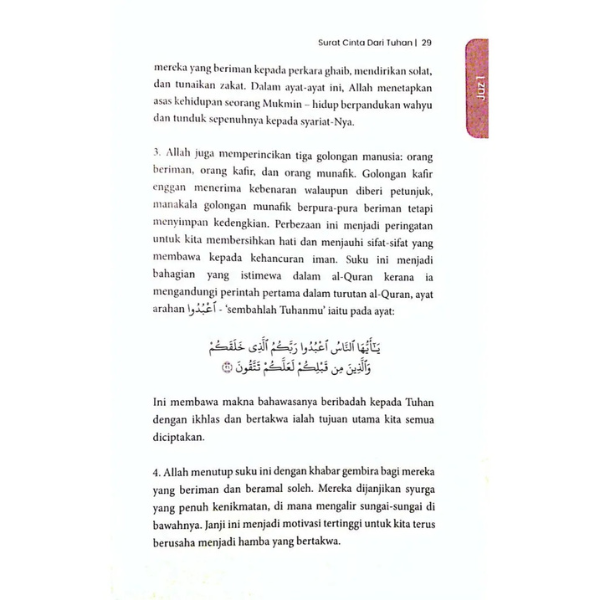 Surat Cinta Dari Tuhan | 29
Juz 1
mereka yang beriman kepada perkara ghaib, mendirikan solat,
dan tunaikan zakat. Dalam ayat-ayat ini, Allah menetapkan
asas kehidupan seorang Mukmin – hidup berpandukan wahyu
dan tunduk sepenuhnya kepada syariat-Nya.
3. Allah juga memperincikan tiga golongan manusia: orang
beriman, orang kafir, dan orang munafik. Golongan kafir
enggan menerima kebenaran walaupun diberi petunjuk,
manakala golongan munafik berpura-pura beriman tetapi
menyimpan kedengkian. Perbezaan ini menjadi peringatan
untuk kita membersihkan hati dan menjauhi sifat-sifat yang
membawa kepada kehancuran iman. Suku ini menjadi
bahagian yang istimewa dalam al-Quran kerana ia
mengandungi perintah pertama dalam turutan al-Quran, ayat
arahan ٱعْبُدُوا - 'sembahlah Tuhanmu' iaitu pada ayat:
يَـٰٓأَيُّهَا ٱلنَّاسُ ٱعْبُدُوا رَبَّكُمُ ٱلَّذِى خَلَقَكُمْ
وَٱلَّذِينَ مِن قَبْلِكُمْ لَعَلَّكُمْ تَتَّقُونَ ٢١
Ini membawa makna bahawasanya beribadah kepada Tuhan
dengan ikhlas dan bertakwa ialah tujuan utama kita semua
diciptakan.
4. Allah menutup suku ini dengan khabar gembira bagi mereka
yang beriman dan beramal soleh. Mereka dijanjikan syurga
yang penuh kenikmatan, di mana mengalir sungai-sungai di
bawahnya. Janji ini menjadi motivasi tertinggi untuk kita terus
berusaha menjadi hamba yang bertakwa.